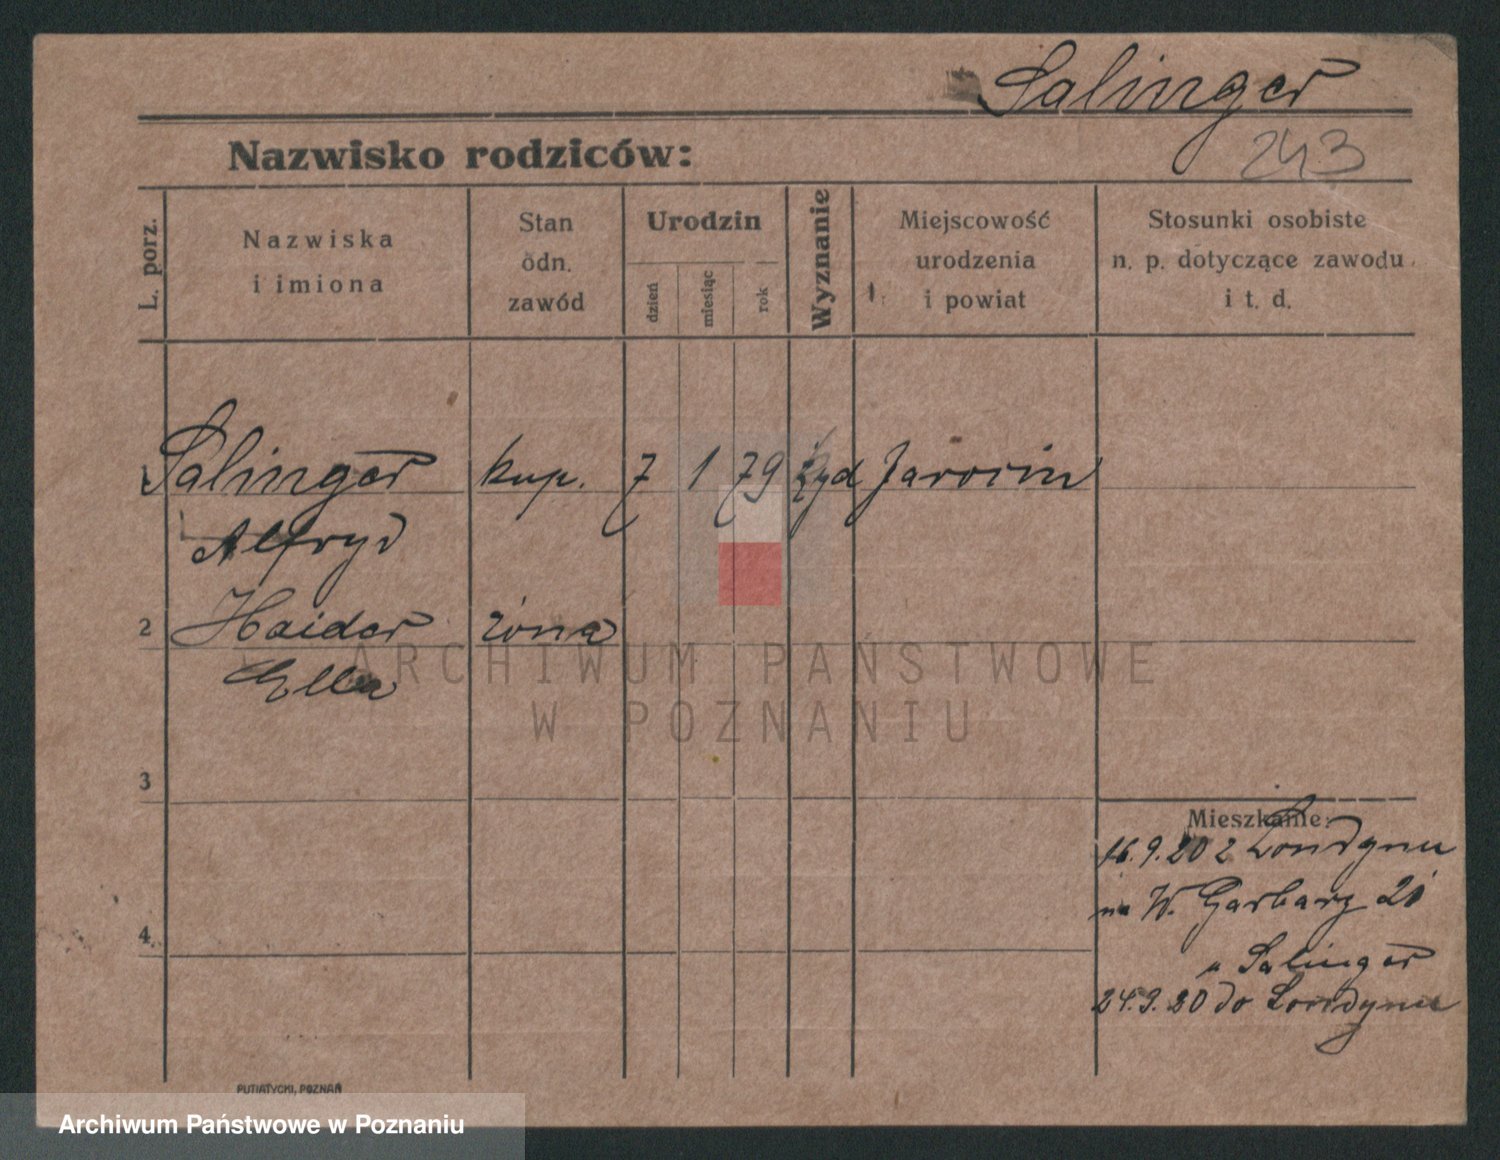 Salinger
243
Nazwisko rodziców:
L. porz.
Nazwiska
i imiona
Stan
odn.
zawód
Urodzin
dzień
miesiąc
rok
Wyznanie
Miejscowość
urodzenia
i powiat
Stosunki osobiste
n. p. dotyczące zawodu
i t. d.
Salinger kup. 7 1 79 żyd Jarocin
Alfryd
2 Haider żona
Ella
ARCHIWUM PAŃSTWOWE
W POZNANIU
3
Mieszkanie:
16.9.20 z Londynu
na W. Garbary 21
u Salinger
4
24.9.20 do Londynu
PUTIATYCKI, POZNAŃ
Archiwum Państwowe w Poznaniu